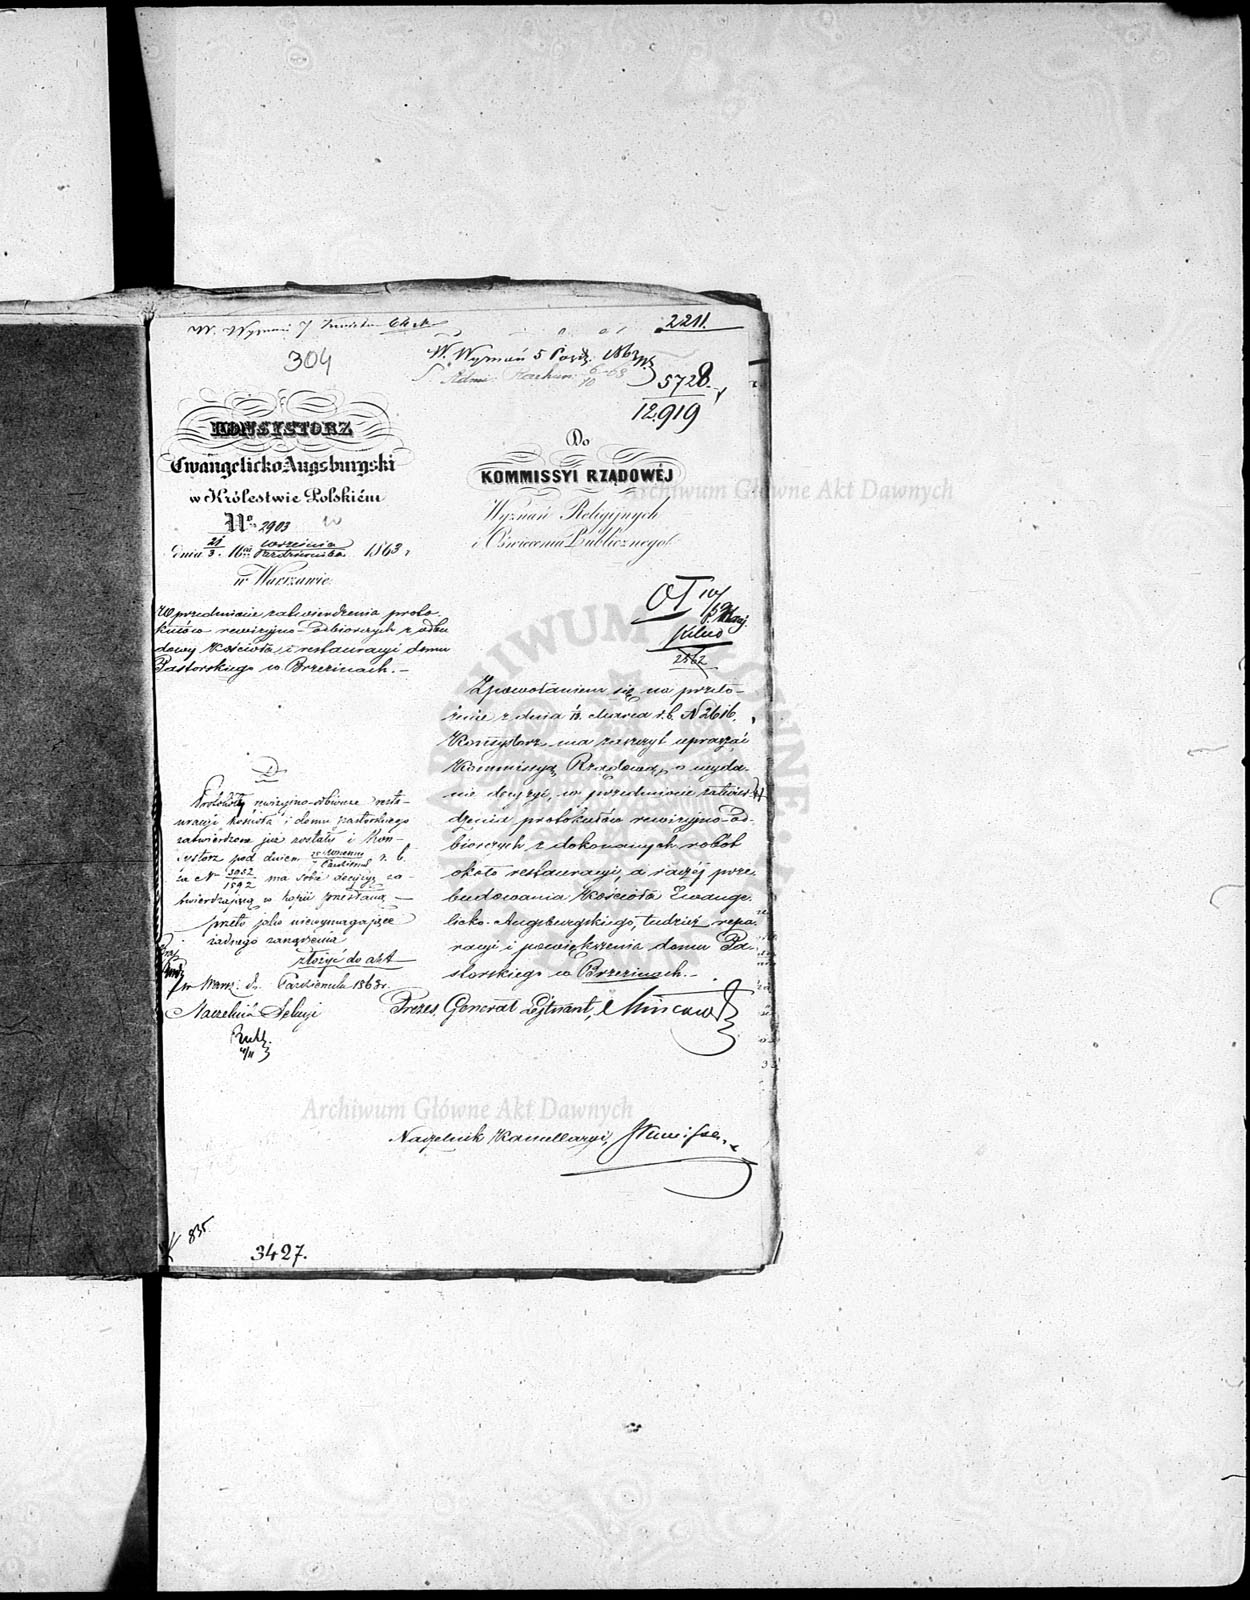 2211.
304
W. Wyznań 5 Paźdz. 1863 r.
5728.
12.919
KONSYSTORZ
Ewangelicko-Augsburgski
w Królestwie Polskiém
No 2903
dnia 21/3 Września/Października 1863 r
w Warszawie
Do
KOMMISSYI RZĄDOWÉJ
Wyznań Religijnych
i Oświecenia Publicznego.
W przedmiocie zatwierdzenia proto-
kułów rewizyjno-odbiorczych z odbu
dowy Kościoła i restauracyi domu
Pastorskiego w Brzezinach. -
pilno
2562
Z powołaniem się na przeło-
żenie z dnia Marca r.b. N 2616.
Konsystorz ma zaszczyt upraszać
Kommissyą Rządową, o wyda-
nie decyzyi, w przedmiocie zatwier-
dzenia protokułów rewizyjno-od-
biorczych z dokonanych robót
około restauracyi, a raczéj prze-
budowania Kościoła Ewange-
licko-Augsburgskiego, tudzież repa-
racyi i powiększenia domu Pa-
storskiego w Brzezinach. -
Prezes, Generał Lejtnant,
Naczelnik Kancellaryi,
D
Protokóły rewizyjno-odbiorcze resta-
uracyi Kościoła i domu pastorskiego
zatwierdzone już zostały i Kon-
systorz pod dniem r. b.
za No 3052/1592 ma sobie decyzyę za-
twierdzającą w kopii przesłaną -
przeto jako niewymagające
żadnego zarządzenia
złożyć do akt
w Warsz: d. Października 1863 r.
Naczelnik Sekcyi
835
3427.
Archiwum Główne Akt Dawnych
Archiwum Główne Akt Dawnych